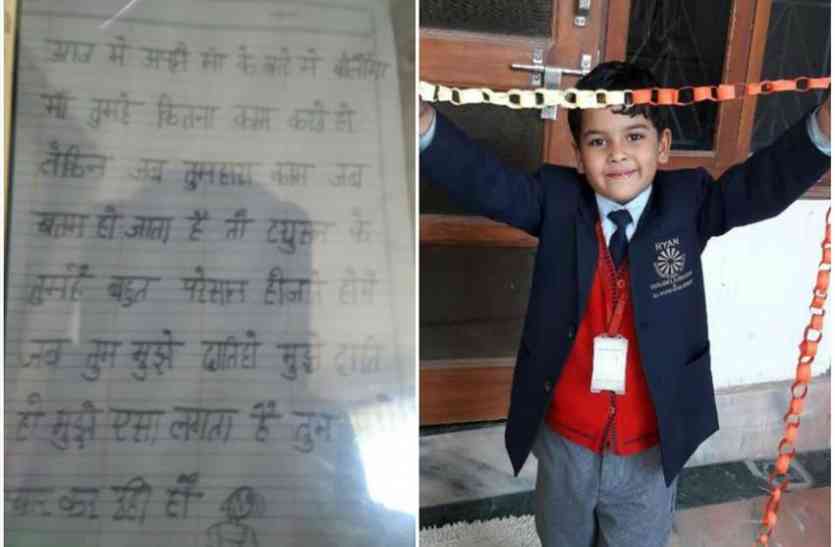 आज मे अपनी माँ के बारे मे बोलूँगा
माँ तुमहे कितना काम करते हो
लेकिन जब तुमहारा काम जब
खतम हो जाता है तो टयुसन के
तुमहे बहुत परेसान हो जाते होगे
जब तुम मुझे दातिहो मुझे दाति
हो मुझे एसा लगता है तुम
कर रही हो
RYAN